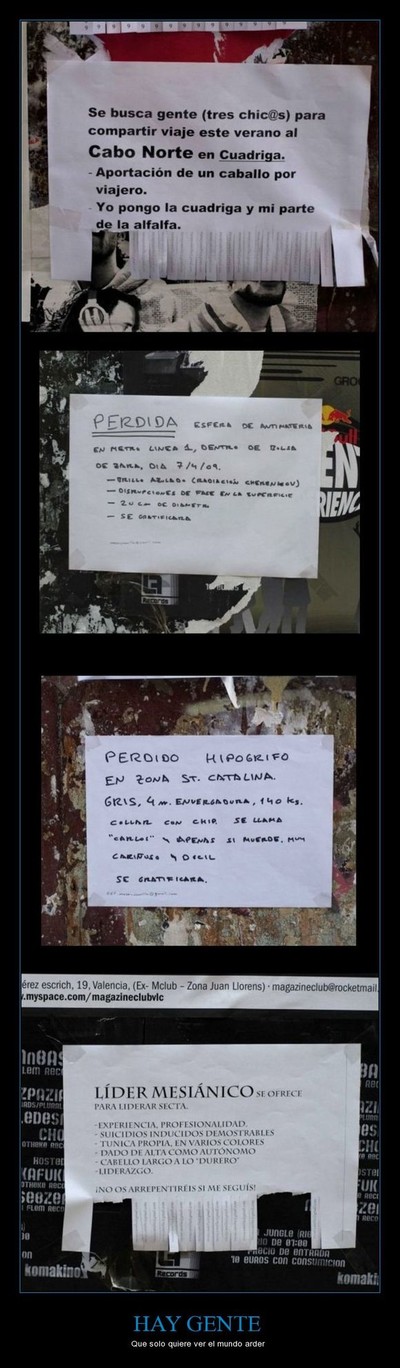 Se busca gente (tres chic@s) para
compartir viaje este verano al
Cabo Norte en Cuadriga.
- Aportación de un caballo por
viajero.
- Yo pongo la cuadriga y mi parte
de la alfalfa.
GRO
PERDIDA ESFERA DE ANTIMATERIA
EN METRO LINEA 1, DENTRO DE BOLSA
DE ZARA, DIA 7/4/09.
- BRILLO AZULADO (RADIACIÓN CHERENKOV)
- DISRUPCIONES DE FASE EN LA SUPERFICIE
- 20 cm DE DIAMETRO
- SE GRATIFICARA
Records
PERDIDO HIPOGRIFO
EN ZONA ST. CATALINA.
GRIS, 4 m. ENVERGADURA, 140 KG.
COLLAR CON CHIP. SE LLAMA
"CARLOS" Y APENAS SI MUERDE. MUY
CARIÑOSO Y DOCIL
SE GRATIFICARA.
érez escrich, 19, Valencia, (Ex- Mclub – Zona Juan Llorens) · magazineclub@rocketmail.
.myspace.com/magazineclubvlc
LÍDER MESIÁNICO SE OFRECE
PARA LIDERAR SECTA.
-EXPERIENCIA, PROFESIONALIDAD.
- SUICIDIOS INDUCIDOS DEMOSTRABLES
- TUNICA PROPIA, EN VARIOS COLORES
- DADO DE ALTA COMO AUTÓNOMO
- CABELLO LARGO A LO "DURERO"
-LIDERAZGO.
¡NO OS ARREPENTIRÉIS SI ME SEGUÍS!
JUNGLE
DE 01:00
PRECIO DE ENTRADA
10 EUROS CON CONSUMICION
komakino
Records
komaki
HAY GENTE
Que solo quiere ver el mundo arder